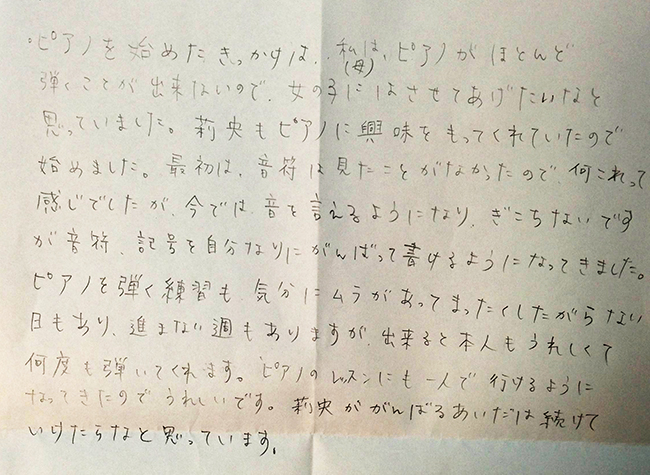 ・ピアノを始めたきっかけは、私は、ピアノがほとんど
(母)
弾くことが出来ないので、女の子にはさせてあげたいなと
思っていました。莉央もピアノに興味をもってくれていたので
始めました。最初は、音符は見たことがなかったので、何これって
感じでしたが、今では、音を言えるようになり、ぎこちないです
が音符、記号を自分なりにがんばって書けるようになってきました。
ピアノを弾く練習も、気分にムラがあってまったくしたがらない
日もあり、進まない週もありますが、出来ると本人もうれしくて
何度も弾いてくれます。ピアノのレッスンにも一人で行けるように
なってきたのでうれしいです。莉央ががんばるあいだは続けて
いけたらなと思っています。